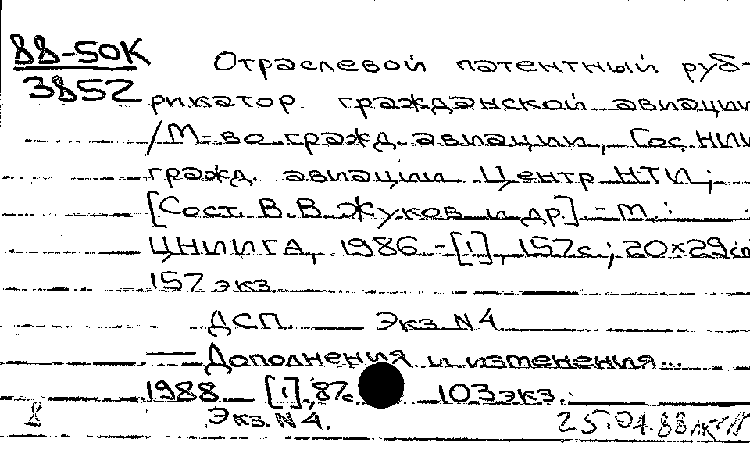 88-50К Отраслевой патентный руб-
3852 рикатор гражданской авиации
/М-во гражд. авиации, Гос НИИ
гражд. авиации Центр НТИ;
[Сост. В.В. Жуков и др.] - М.:
ЦНИИГА, 1986 - [1], 157с.; 20×29см
157 экз
ДСП Экз N4
— Дополнения и изменения...
1988 [1], 87с 103экз.
8 Экз. N4. 25.04.88